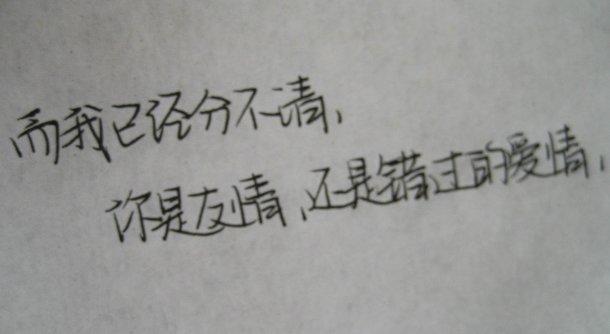 而我已经分不清，
你是友情，还是错过的爱情，